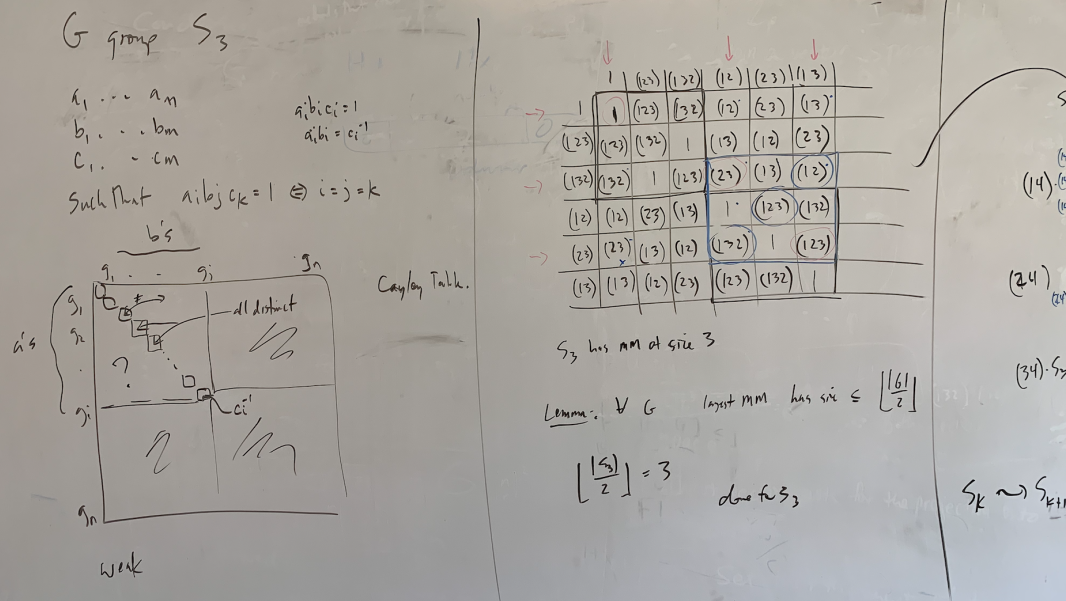 G group S₃
a₁ ... aₘ
b₁ ... bₘ
c₁ .. cₘ
aᵢbᵢcᵢ = 1
aᵢbᵢ = cᵢ⁻¹
Such That aᵢbⱼcₖ = 1 ⇔ i=j=k
b's
g₁ .. gᵢ gₙ
a's
g₁
g₂
.
gᵢ
gₙ
≠
all distinct
?
cᵢ⁻¹
Cayley Table.
weak
1 (123) (132) (12) (23) (13)
1 1 (123) (132) (12) (23) (13)
(123) (123) (132) 1 (13) (12) (23)
(132) (132) 1 (123) (23) (13) (12)
(12) (12) (23) (13) 1 (123) (132)
(23) (23) (13) (12) (132) 1 (123)
(13) (13) (12) (23) (123) (132) 1
S₃ has MM of size 3
Lemma: ∀ G largest MM has size ≤ ⌊|G|/2⌋
⌊|S₃|/2⌋ = 3
done for S₃
S
(14)
(24)
(34)·S₃
Sₖ ⇝ Sₖ₊₁